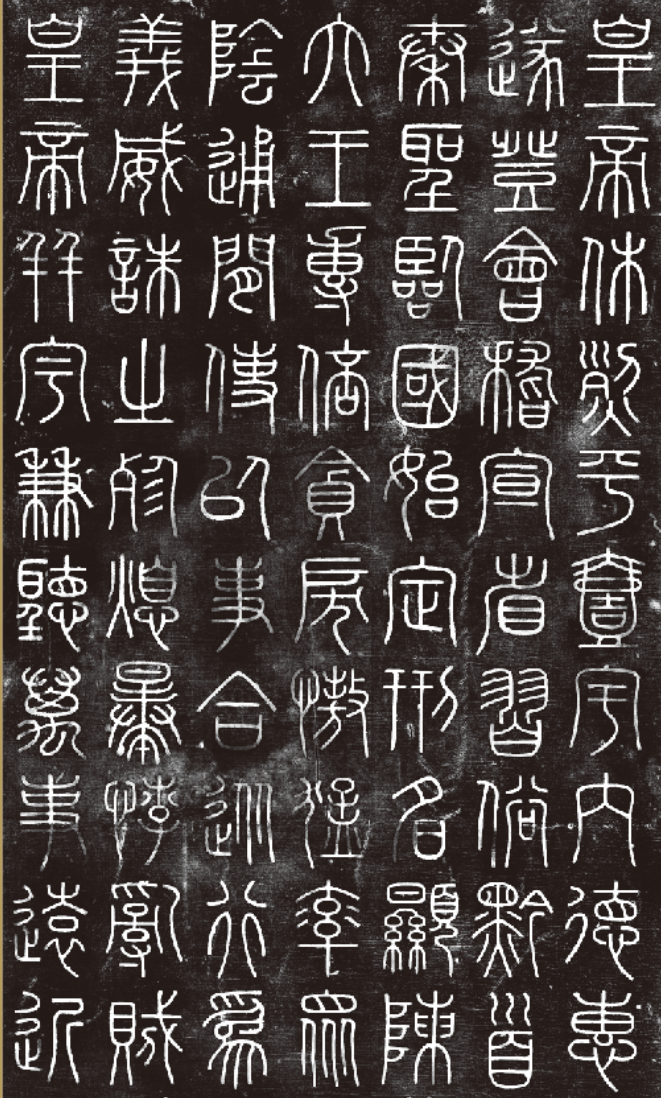 皇帝休烈平壹宇内德惠
遂登會稽宣省習俗黔首
秦聖臨國始定刑名顯陳
六王專倍貪戾慠猛率眾
陰通閒使以事合從行為
義威誅之殄熄暴悖亂賊
皇帝并宇兼聽萬事遠近